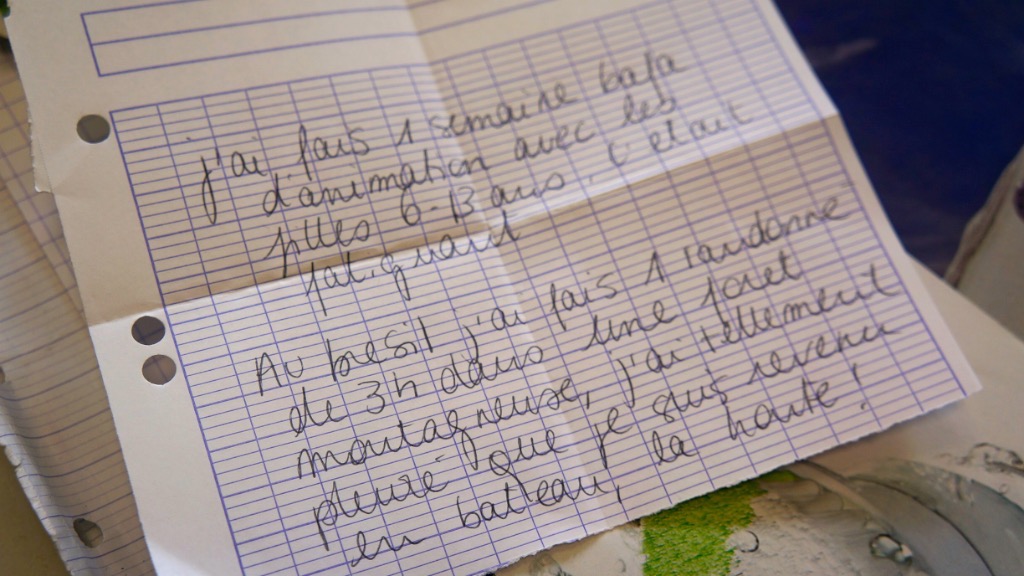 j'ai fais 1 semaine bafa
d'animation avec les
filles 6-13 ans. C'etait
fatiguant
Au bresil j'ai fais 1 randonné
de 3h dans une foret
montagneuse, j'ai tellement
pleuré que je suis revenu
en bateau, la honte!